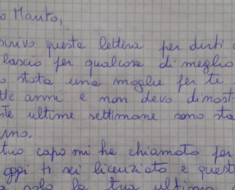 o Mauto,
scrivo questa lettera per dirti c
lascio per qualcosa di meglio
o stata una moglie per te
tte anni e non devo dimost
ste ultime settimane sono sta
rno.
tuo capo mi he chiamoto per
oggi ti sei licenziato e quest
la tua ultima